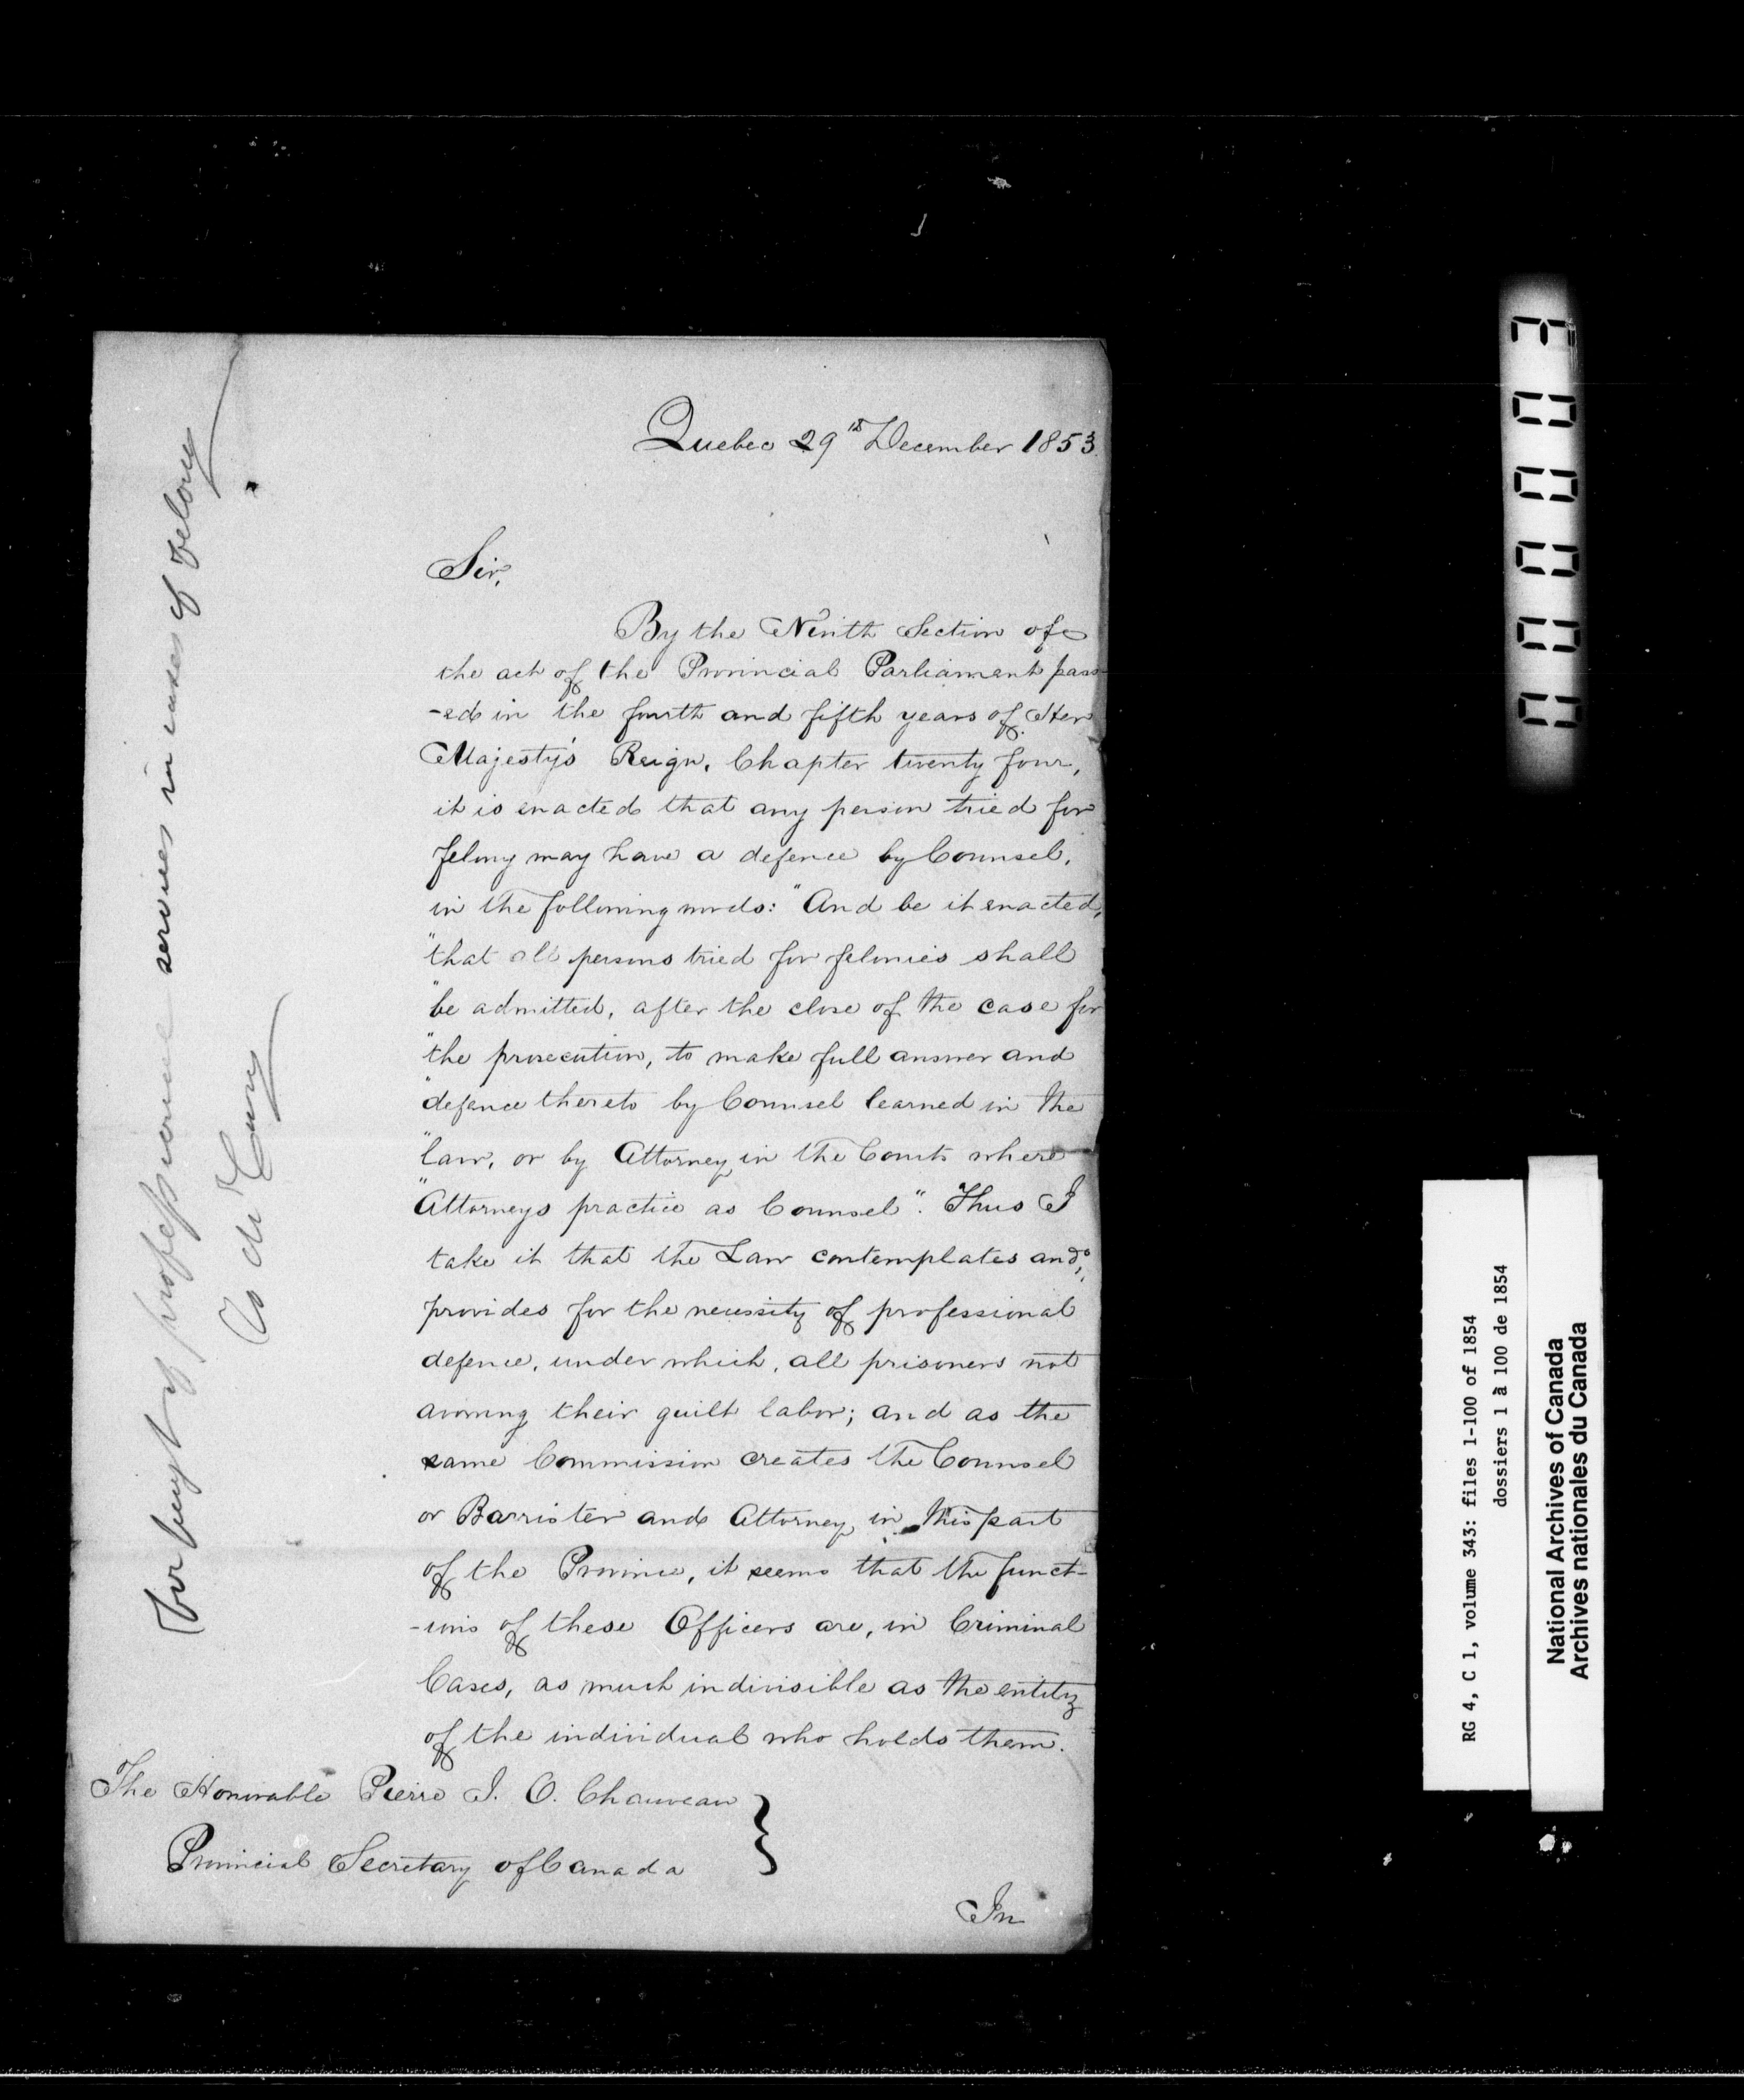 Quebec 29th December 1853.
Sir,
By the Ninth Section of
the act of the Provincial Parliament pass-
-ed in the fourth and fifth years of Her
Majesty's Reign, Chapter twenty four,
it is enacted that any person tried for
felony may have a defence by Counsel,
in the following words: "And be it enacted,
"that all persons tried for felonies shall
"be admitted, after the close of the case for
"the prosecution, to make full answer and
"defence thereto by Counsel learned in the
"law, or by Attorney in the Courts where
"Attorneys practice as Counsel". Thus I
take it that the Law contemplates and
provides for the necessity of professional
defence, under which, all prisoners not
avowing their guilt labor; and as the
same Commission creates the Counsel
or Barrister and Attorney in this part
of the Province, it seems that the funct-
-ions of these Officers are, in Criminal
Cases, as much indivisible as the entity
of the individual who holds them.
The Honorable Pierre J. O. Chauveau
Provincial Secretary of Canada
In
services in cases of Felony
000003
RG 4, C 1, volume 343: files 1-100 of 1854
dossiers 1 à 100 de 1854
National Archives of Canada
Archives nationales du Canada